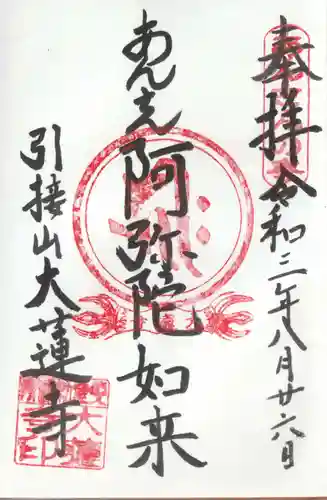 奉拝
令和三年八月廿六日
あんざん阿弥陀如来
引接山大蓮寺